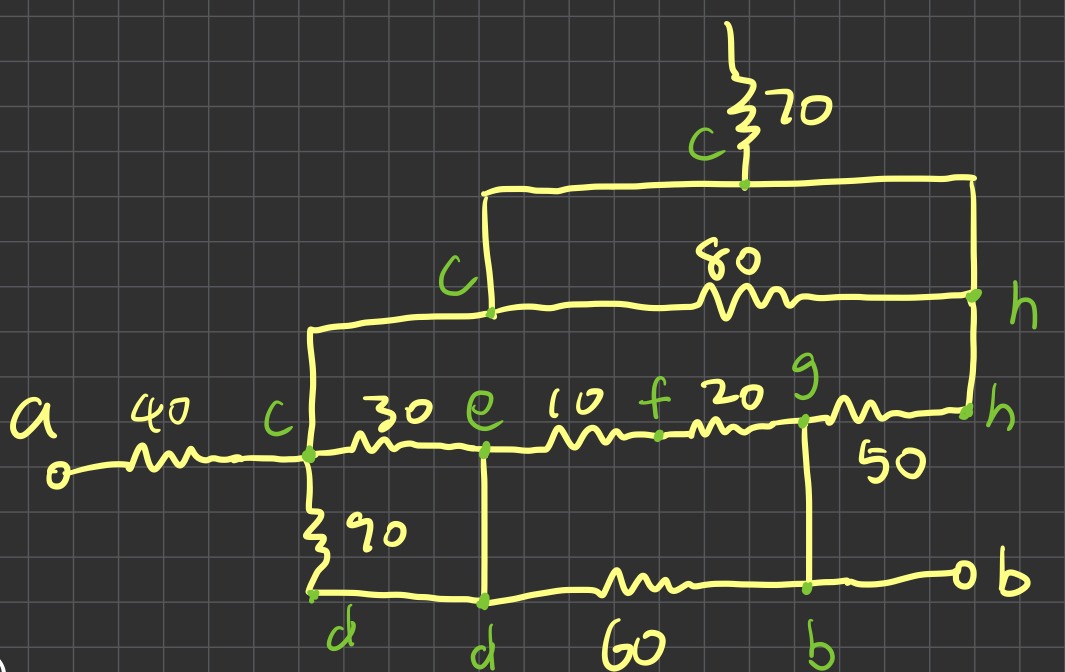 70
C
80
C
h
a 40 c 30 e 10 f 20 g
h
50
90
b
d d 60 b